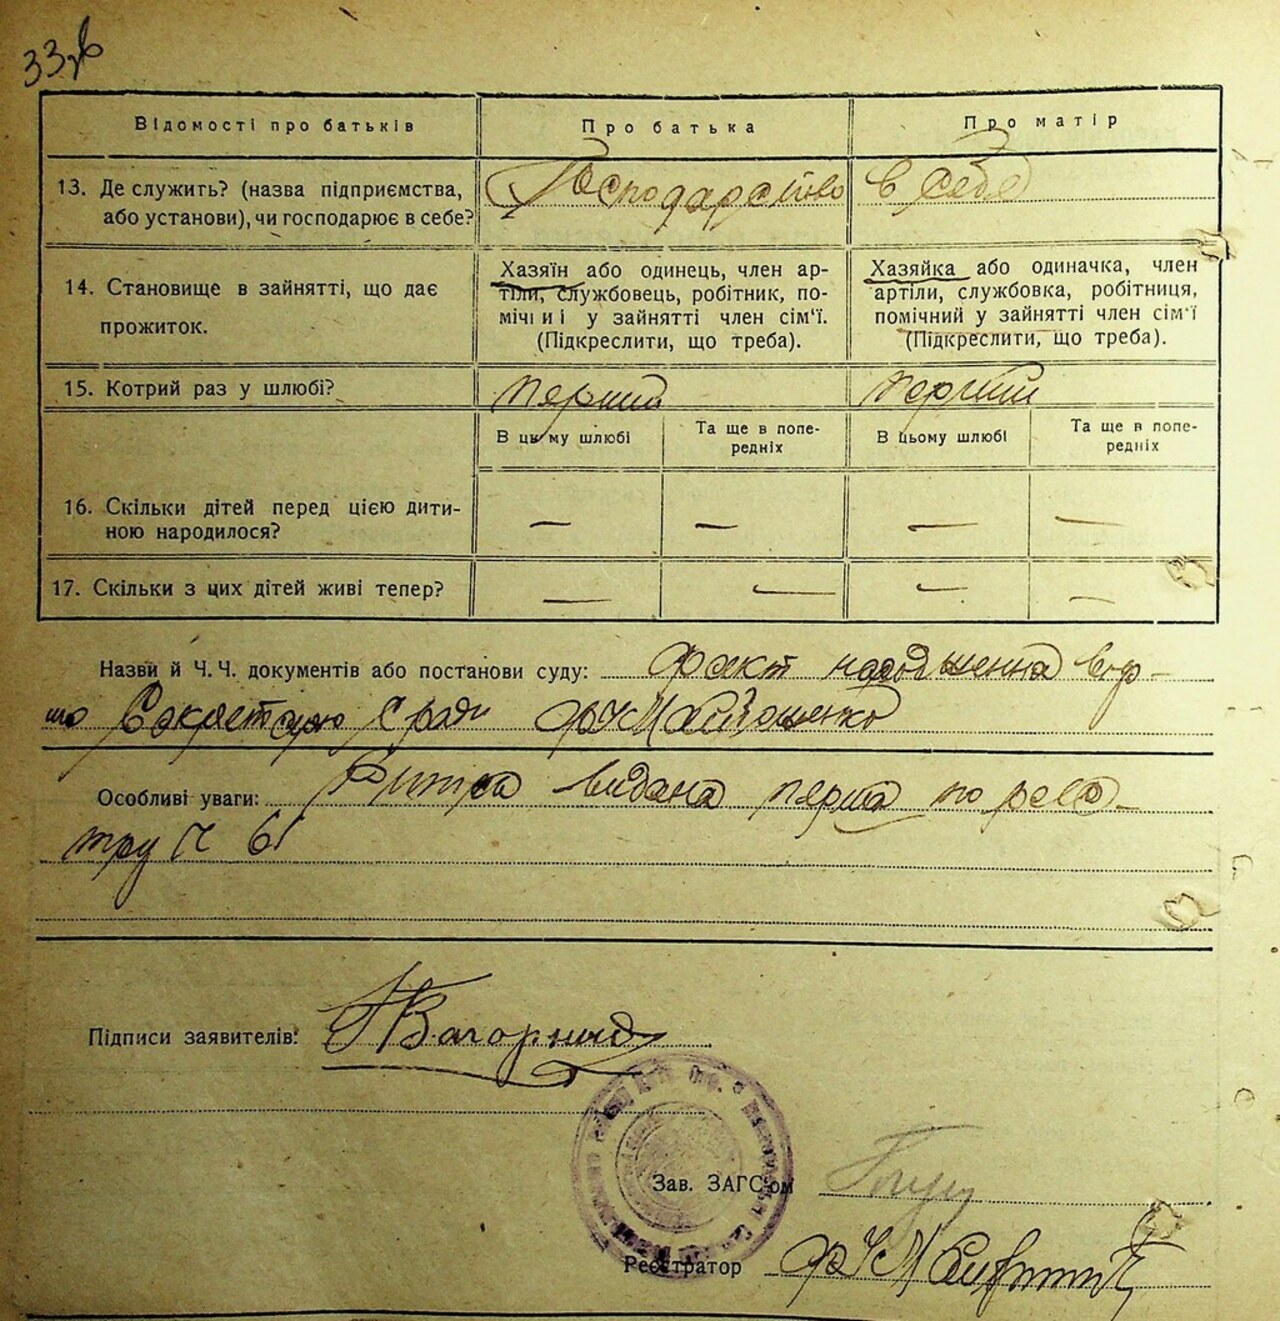 33
Відомості про батьків
Про батька
Про матір
13. Де служить? (назва підприємства,
або установи), чи господарює в себе?
Господарство
в себе
14. Становище в зайнятті, що дає
прожиток.
Хазяїн або одинець, член ар-
тіли, службовець, робітник, по-
мічний у зайнятті член сім'ї.
(Підкреслити, що треба).
Хазяйка або одиначка, член
артіли, службовка, робітниця,
помічний у зайнятті член сім'ї
(Підкреслити, що треба).
15. Котрий раз у шлюбі?
перший
перший
В цьому шлюбі
Та ще в попе-
редніх
В цьому шлюбі
Та ще в попе-
редніх
16. Скільки дітей перед цією дити-
ною народилося?
— — — —
17. Скільки з цих дітей живі тепер?
— — — —
Назви й Ч. Ч. документів або постанови суду: факт народження
Секретарю
Особливі уваги: видана перша по реєс-
тру Ч 61
Підписи заявителів: Загорний
Зав. ЗАГС'ом
Реєстратор